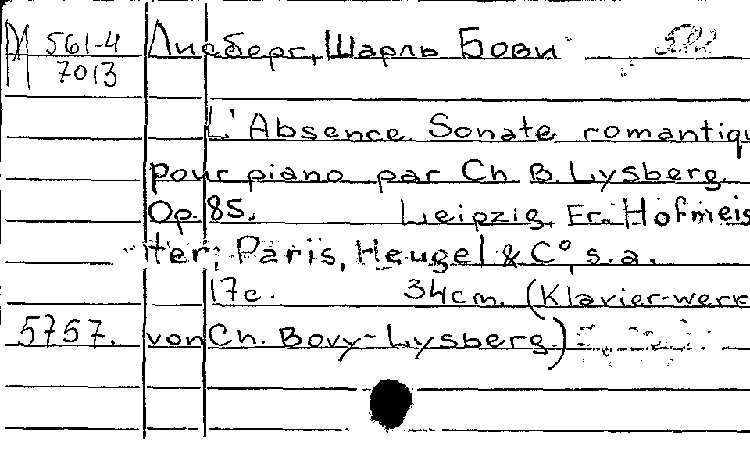 М 561-4
7013
Лисберг, Шарль Бови
L'Absence. Sonate romantiqu
pour piano par Ch. B. Lysberg.
Op. 85. Leipzig, Fr. Hofmeis
ter; Paris, Heugel & C°, s.a.
17c. 34cm. (Klavier-werk
5757. von Ch. Bovy-Lysberg.)